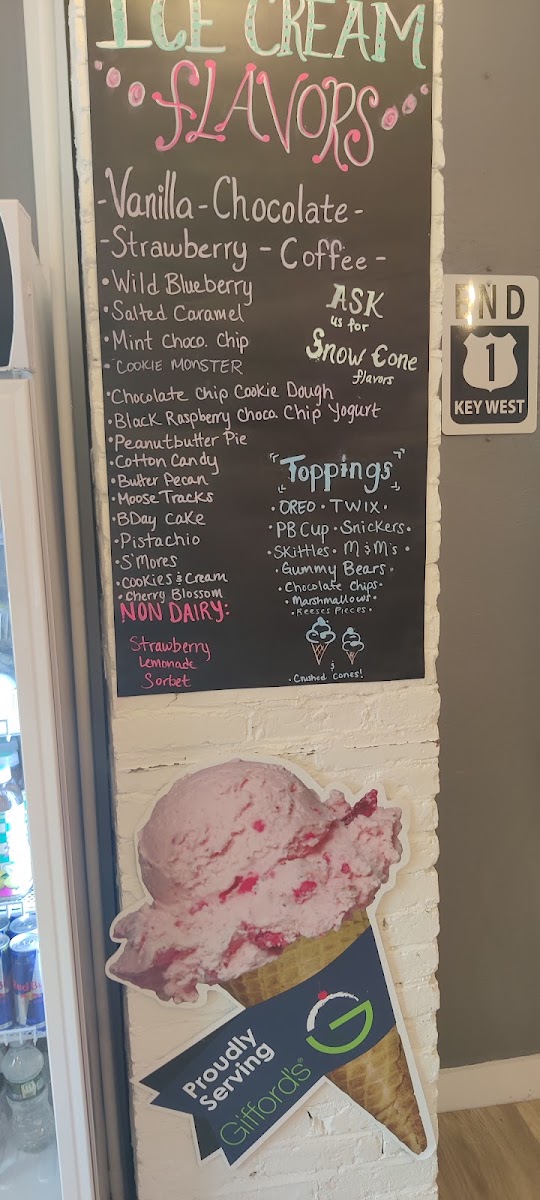 ICE CREAM
FLAVORS
- Vanilla - Chocolate -
- Strawberry - Coffee -
• Wild Blueberry
• Salted Caramel
• Mint Choco. Chip
• COOKIE MONSTER
• Chocolate Chip Cookie Dough
• Black Raspberry Choco. Chip Yogurt
• Peanutbutter Pie
• Cotton Candy
• Butter Pecan
• Moose Tracks
• BDay Cake
• Pistachio
• S'mores
• Cookies & Cream
• Cherry Blossom
NON DAIRY:
Strawberry
Lemonade
Sorbet
ASK
us for
Snow Cone
flavors
Toppings
• OREO • TWIX •
• PB Cup • Snickers •
• Skittles • M&M's •
• Gummy Bears •
• Chocolate Chips •
• Marshmallows •
• Reeses Pieces •
&
• Crushed Cones!
END
1
KEY WEST
Proudly
Serving
Gifford's®
G